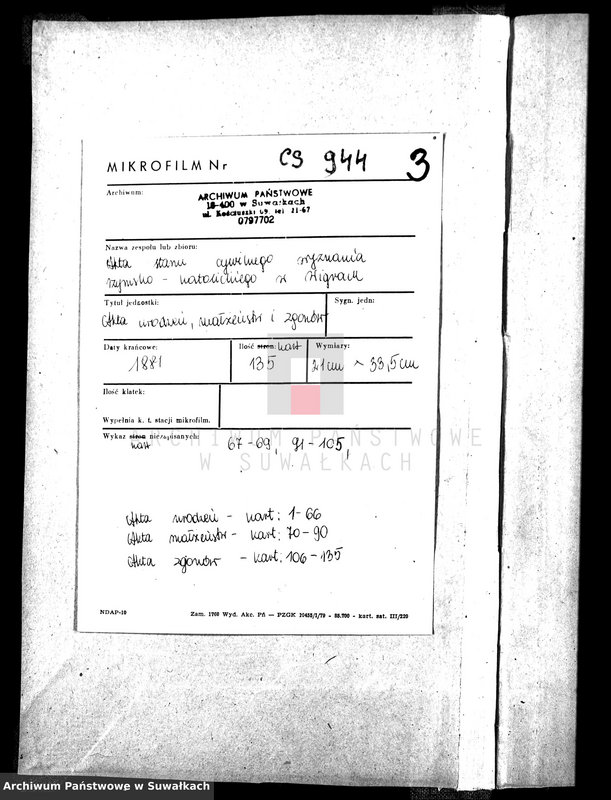 MIKROFILM Nr CS 944 3
Archiwum:
ARCHIWUM PAŃSTWOWE
16-400 w Suwałkach
ul. Kościuszki 69, tel 21-67
0797702
Nazwa zespołu lub zbioru:
Akta stanu cywilnego wyznania
rzymsko - katolickiego w Wigrach
Tytuł jednostki:
Sygn. jedn:
Akta urodzeń, małżeństw i zgonów
Daty krańcowe:
Ilość stron: kart
Wymiary:
1881
135
21cm × 33,5cm
Ilość klatek:
Wypełnia k. t. stacji mikrofilm.
Wykaz stron niezapisanych:
kart
67-69, 91-105,
ARCHIWUM PAŃSTWOWE
W SUWAŁKACH
Akta urodzeń - kart: 1-66
Akta małżeństw - kart: 70-90
Akta zgonów - kart: 106-135
NDAP-10
Zam. 1760 Wyd. Akc. Pń — PZGK
kart. sat. III/220
Archiwum Państwowe w Suwałkach